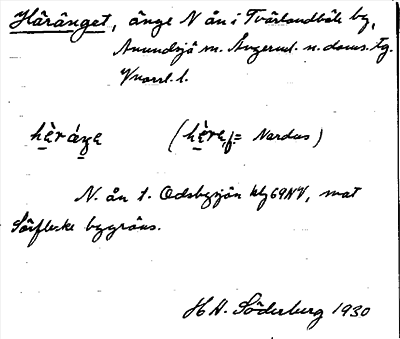 Häränget, änge N ån i Tvärlandböle by,
Anundsjö sn. Ångerml. n. doms. tg.
Vnorrl. l.
hèráŋe (hère, f. = Nardus)
N. ån t. Odsbysjön kbl 69 NV, mot
bygräns.
H A. Söderberg 1930